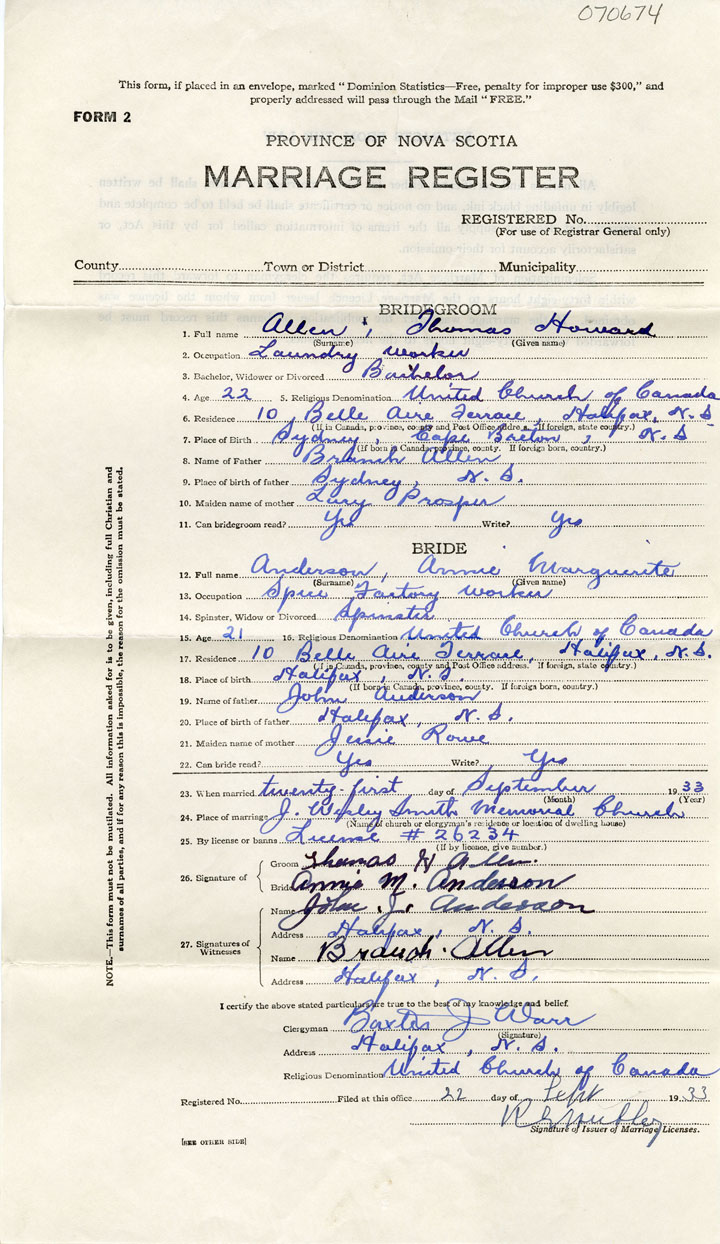 070674
This form, if placed in an envelope, marked "Dominion Statistics—Free, penalty for improper use $300," and
properly addressed will pass through the Mail "FREE."
FORM 2
PROVINCE OF NOVA SCOTIA
MARRIAGE REGISTER
REGISTERED No.
(For use of Registrar General only)
County Town or District Municipality
BRIDEGROOM
1. Full name Allen, Thomas Howard
(Surname) (Given name)
2. Occupation Laundry worker
3. Bachelor, Widower or Divorced Bachelor
4. Age 22 5. Religious Denomination United Church of Canada
6. Residence 10 Belle Aire Terrace, Halifax, N.S
(If in Canada, province, county and Post Office address. If foreign, state country.)
7. Place of Birth Sydney, Cape Breton, N.S
(If born in Canada, province, county. If foreign born, country.)
8. Name of Father Branch Allen
9. Place of birth of father Sydney, N.S.
10. Maiden name of mother Lucy Prosper
11. Can bridegroom read? Yes Write? Yes
BRIDE
12. Full name Anderson, Annie Marguerite
(Surname) (Given name)
13. Occupation Spice Factory worker
14. Spinster, Widow or Divorced Spinster
15. Age 21 16. Religious Denomination United Church of Canada
17. Residence 10 Belle Aire Terrace, Halifax, N.S.
(If in Canada, province, county and Post Office address. If foreign, state country.)
18. Place of birth Halifax, N.S.
(If born in Canada, province, county. If foreign born, country.)
19. Name of father John Anderson
20. Place of birth of father Halifax, N.S.
21. Maiden name of mother Jessie Rowe
22. Can bride read? Yes Write? Yes
23. When married twenty-first day of September 1933
(Month) (Year)
24. Place of marriage J. Wesley Smith Memorial Church
(Name of church or clergyman's residence or location of dwelling house)
25. By license or banns License # 26234
(If by licence, give number.)
26. Signature of Groom Thomas H Allen.
Bride Annie M. Anderson
27. Signatures of Witnesses Name John J. Anderson
Address Halifax, N.S.
Name Branch Allen
Address Halifax, N.S.
I certify the above stated particulars are true to the best of my knowledge and belief.
Clergyman Baxter J Warr
(Signature)
Address Halifax, N.S.
Religious Denomination United Church of Canada
Registered No. Filed at this office 22 day of Sept 1933
Signature of Issuer of Marriage Licenses.
[SEE OTHER SIDE]
NOTE.—This form must not be mutilated. All information asked for is to be given, including full Christian and
surnames of all parties, and if for any reason this is impossible, the reason for the omission must be stated.